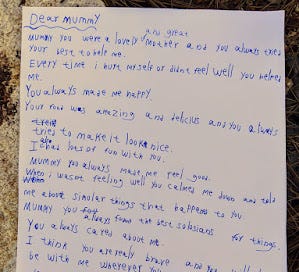 Dear Mummy
and great
Mummy you were a lovely mother and you always tried
your best to help me.
Every time i hurt myself or didnt feel well you helped
me.
You always made me happy.
Your food was amazing and delicius and you always
tried to make it look nice.
I had lots of fun with you.
Mummy you always made me feel good.
When i wasnt feeling well you calmed me down and told
me about similar things that happend to you
Mummy you always found the best solusions for things.
You always cared about me.
I think you are really brave and you will
be with me wherever you